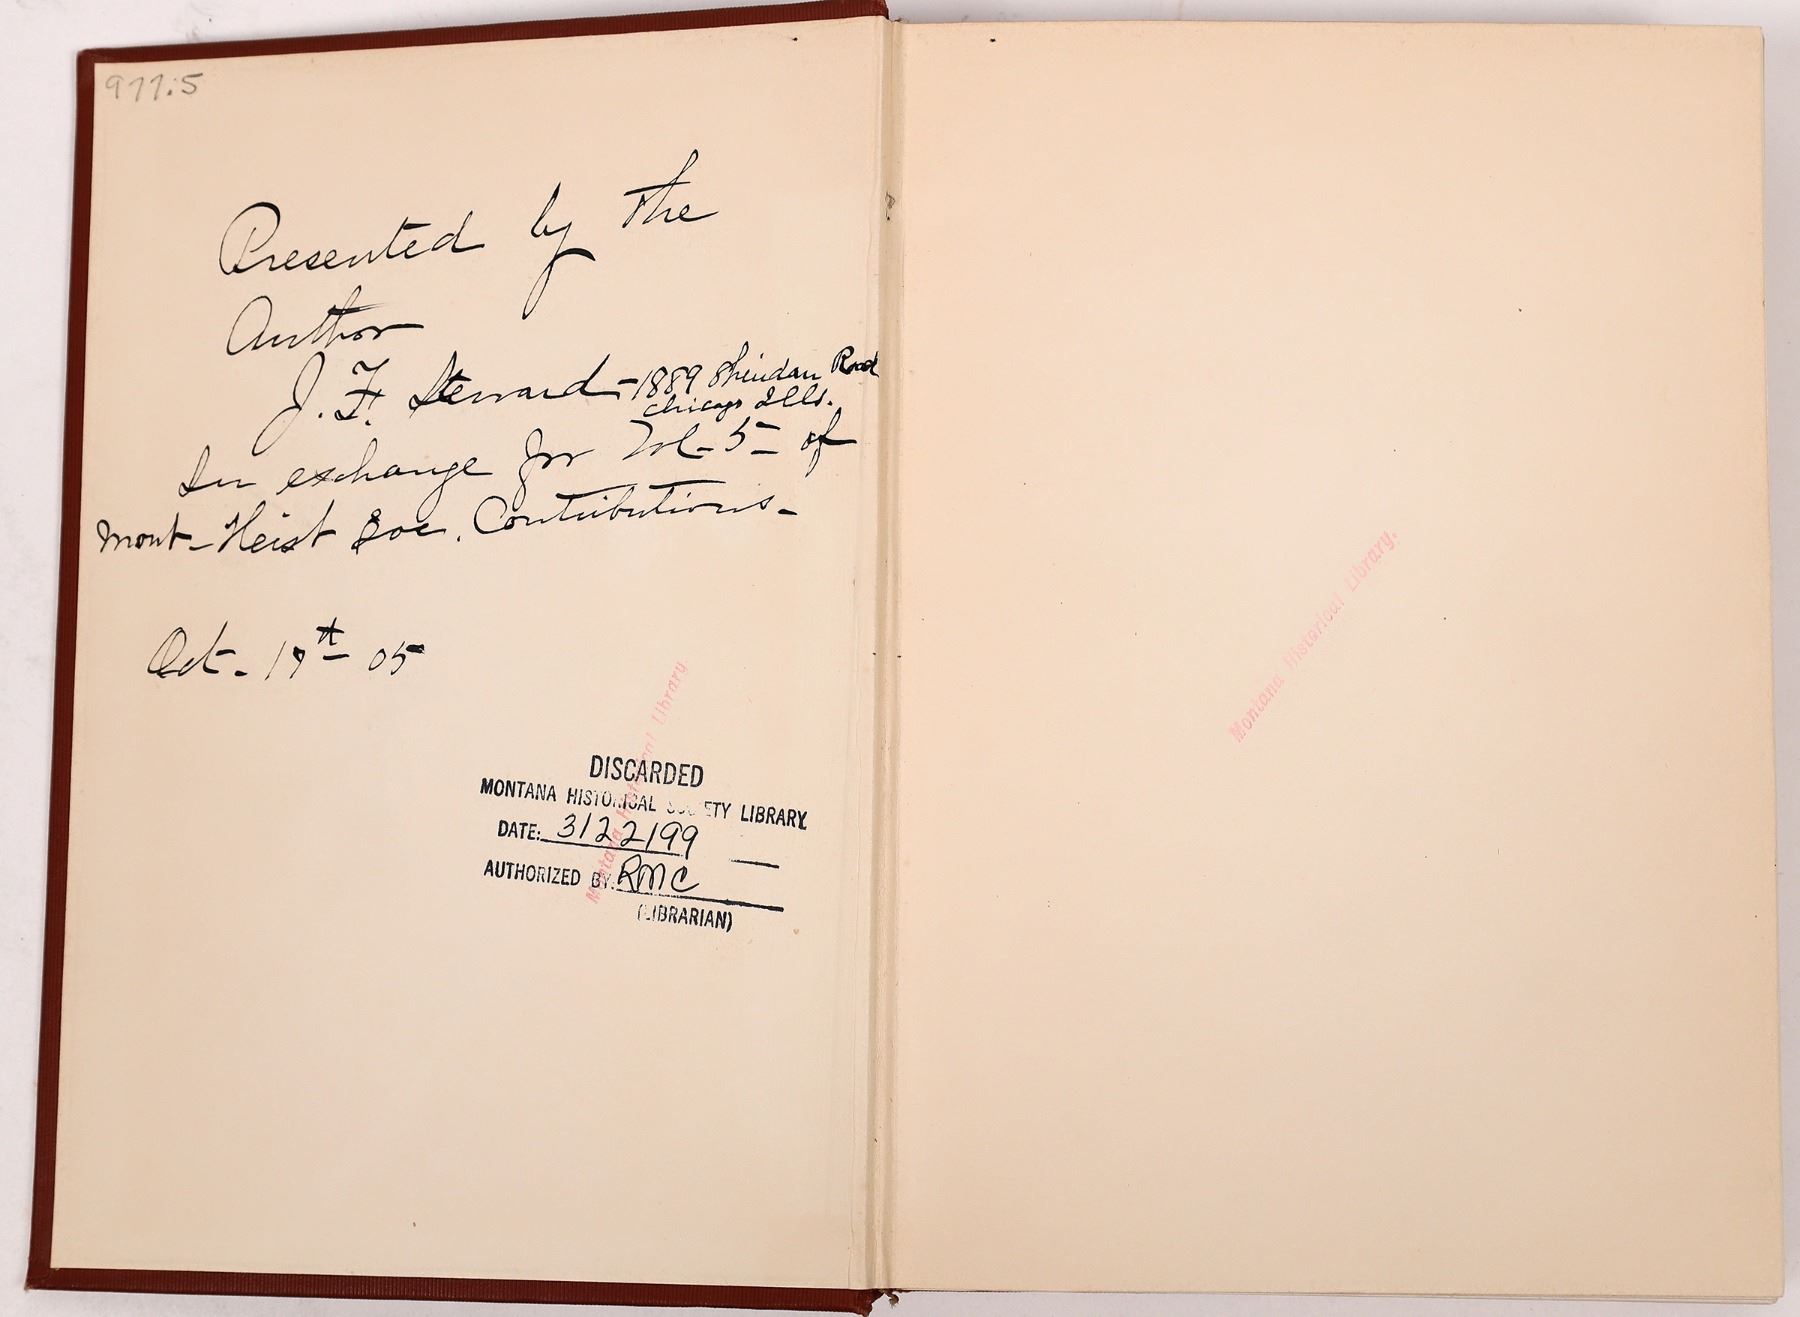 977.5
Presented by the
Author
J. F. Steward - 1889 Sheridan Road
Chicago Ills.
In exchange for Vol - 5 - of
Mont - Heist Soc. Contributions -
Oct - 17th 05
Montana Historical Library.
DISCARDED
MONTANA HISTORICAL SOCIETY LIBRARY
DATE: 3/22/99
AUTHORIZED BY: RMC
(LIBRARIAN)
Montana Historical Library.